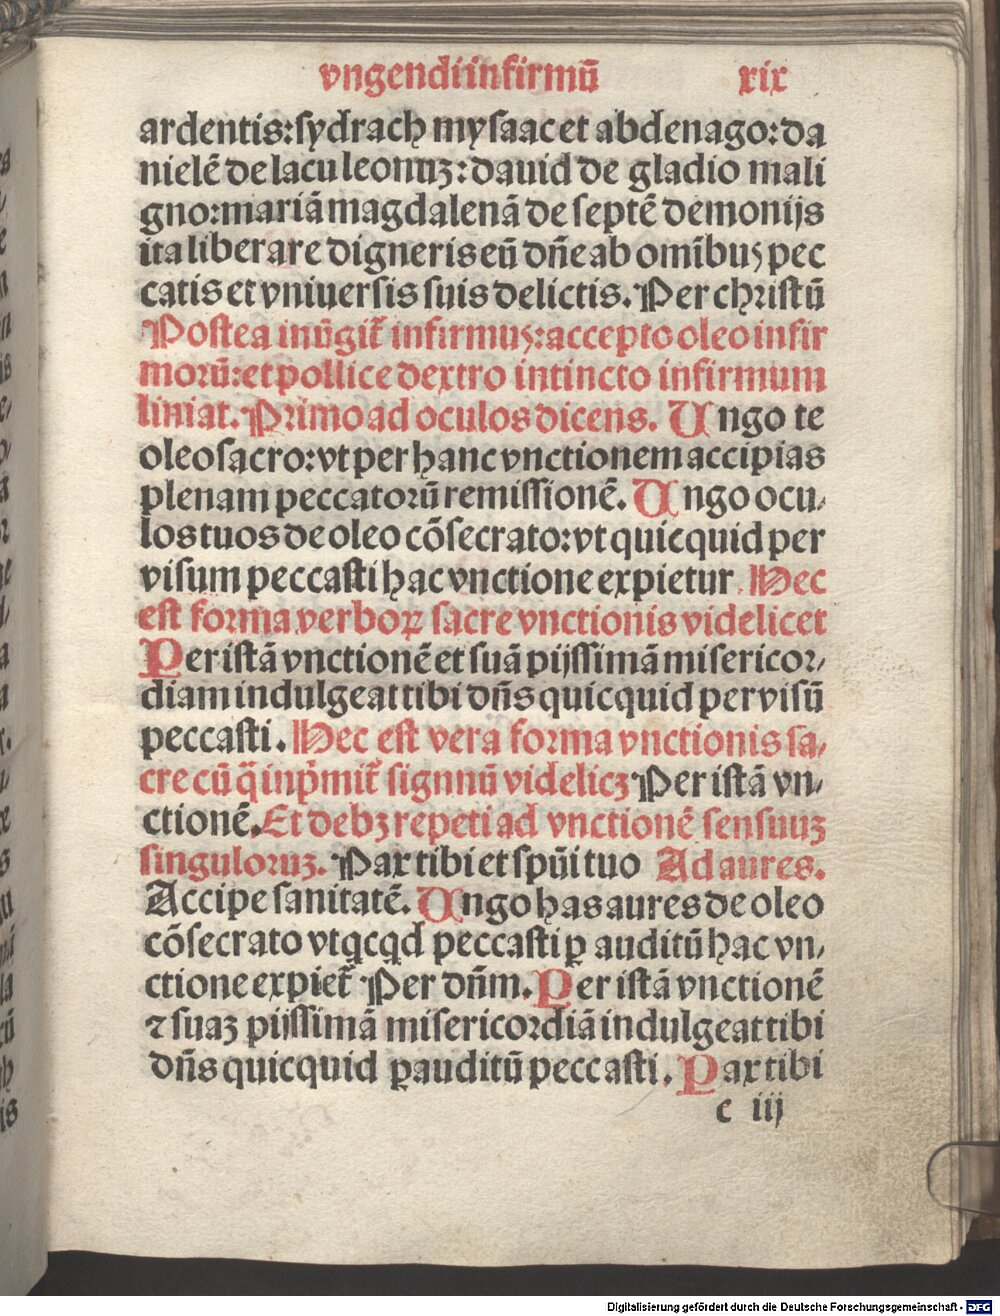 vngendi infirmū xix
ardentis: sydrach mysaac et abdenago: da
nielē de lacu leonuꝫ: dauid de gladio mali
gno: mariā magdalenā de septē demonijs
ita liberare digneris eū dn̄e ab omībuꝰ pec
catis et vniuersis suis delictis. Per christū
Postea inūgit᷑ infirmuꝰ: accepto oleo infir
morū: et pollice dextro intincto infirmum
liniat. Primo ad oculos dicens. Ungo te
oleo sacro: vt per hanc vnctionem accipias
plenam peccatorū remissionē. Ungo ocu⸗
los tuos de oleo cōsecrato: vt quicquid per
visum peccasti hac vnctione expietur. Hec
est forma verboꝝ sacre vnctionis videlicet
Per istā vnctionē et suā pijssimā misericor⸗
diam indulgeat tibi dn̄s quicquid per visū
peccasti. Hec est vera forma vnctionis sa⸗
cre cū q̄ inp̄mit᷑ signnū videlicꝫ Per istā vn⸗
ctionē. Et debꝫ repeti ad vnctionē sensuuꝫ
singuloruꝫ. Pax tibi et spūi tuo Ad aures.
Accipe sanitatē. Ungo has aures de oleo
cōsecrato vt qͥcqͥd peccasti ꝑ auditū hac vn⸗
ctione expiet᷑ Per dn̄m. Per istā vnctionē
⁊ suaꝫ pijssimā misericordiā indulgeat tibi
dn̄s quicquid ꝑ auditū peccasti. Pax tibi
c iij
Digitalisierung gefördert durch die Deutsche Forschungsgemeinschaft - DFG